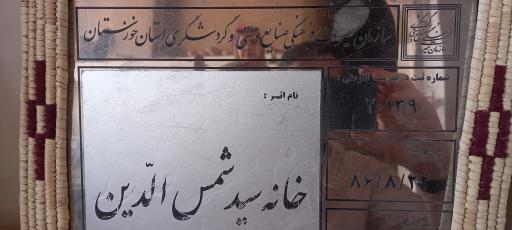 سازمان میراث فرهنگی صنایع دستی و گردشگری استان خوزستان
شماره ثبت در فهرست آثار ملی :
۲۰۱۳۹
نام اثر :
خانه سید شمس الدّین
۸۶/۸/۲۲